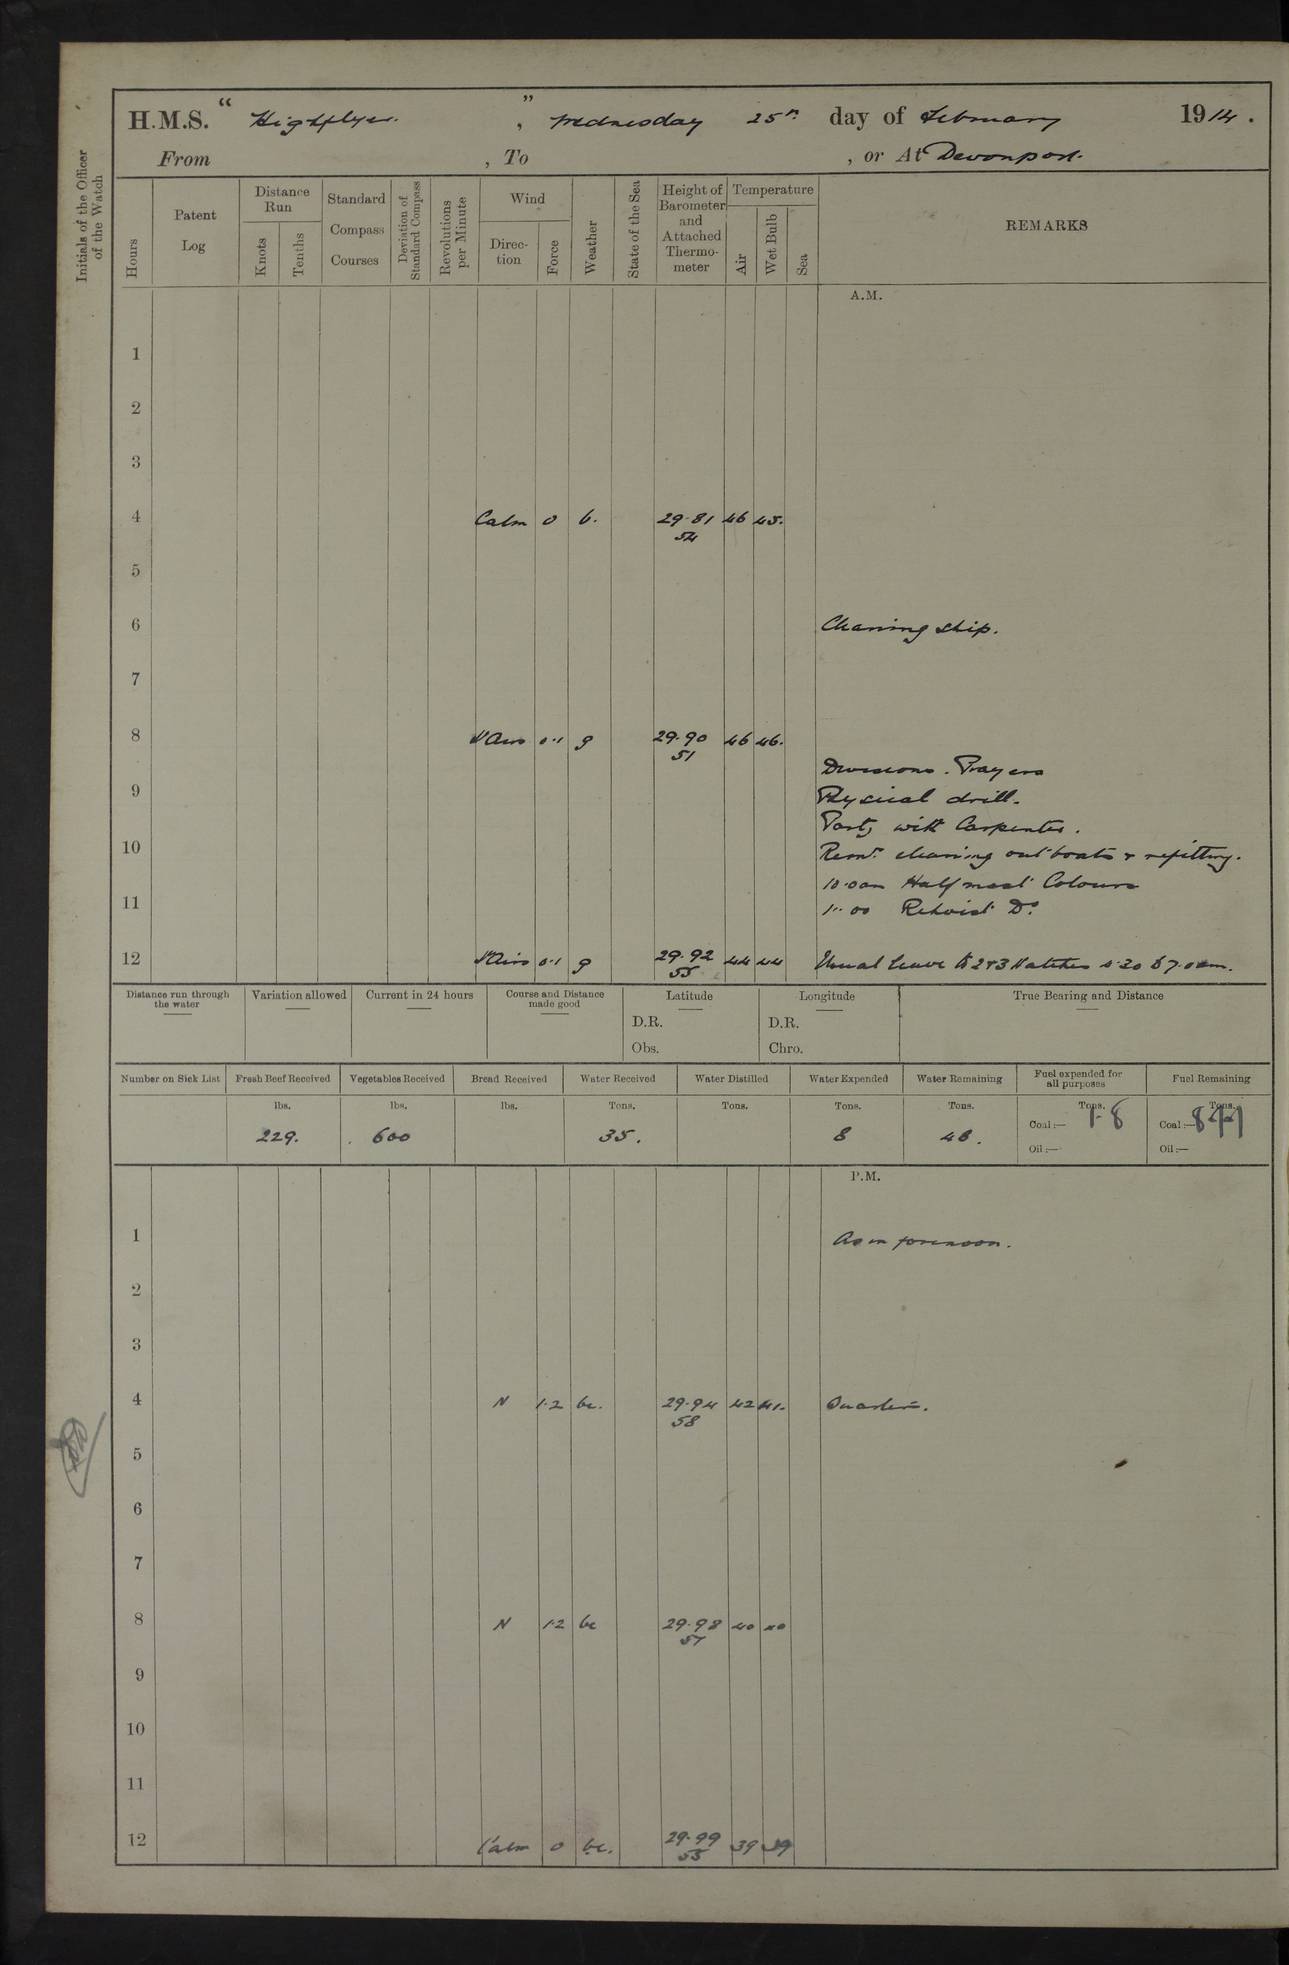 H.M.S. “ Highflyer. ” , Wednesday 25th day of February 1914.
From , To , or At Devonport.
Initials of the Officer of the Watch
Hours
Patent Log
Distance Run
Knots
Tenths
Standard Compass Courses
Deviation of Standard Compass
Revolutions per Minute
Wind
Direction
Force
Weather
State of the Sea
Height of Barometer and Attached Thermometer
Temperature
Air
Wet Bulb
Sea
REMARKS
A.M.
1
2
3
4 Calm 0 b. 29.81 46 45.
54
5
6 Cleaning ship.
7
8 N'Airs 0.1 g 29.90 46 46.
51
Divisions. Prayers
9 Physical drill.
Party with Carpenter.
10 Remr. cleaning out boats & refitting.
10.0am Half mast Colours
11 11.00 Rehoist Do.
12 N'Airs 0.1 g 29.92 44 44 Usual leave to 2 & 3 Watches 4.30 to 7.0am.
55
Distance run through the water
Variation allowed
Current in 24 hours
Course and Distance made good
Latitude
D.R.
Obs.
Longitude
D.R.
Chro.
True Bearing and Distance
Number on Sick List Fresh Beef Received Vegetables Received Bread Received Water Received Water Distilled Water Expended Water Remaining Fuel expended for all purposes Fuel Remaining
lbs. lbs. lbs. Tons. Tons. Tons. Tons. Tons. Tons.
229. 600 35. 8 48. Coal:— 1.8 Coal:— 841
Oil:— Oil:—
P.M.
1 As in forenoon.
2
3
4 N 1.2 bc. 29.94 42 41. Quarters.
58
5
6
7
8 N 1.2 bc 29.98 40 40
57
9
10
11
12 Calm 0 bc. 29.99 39 39
55